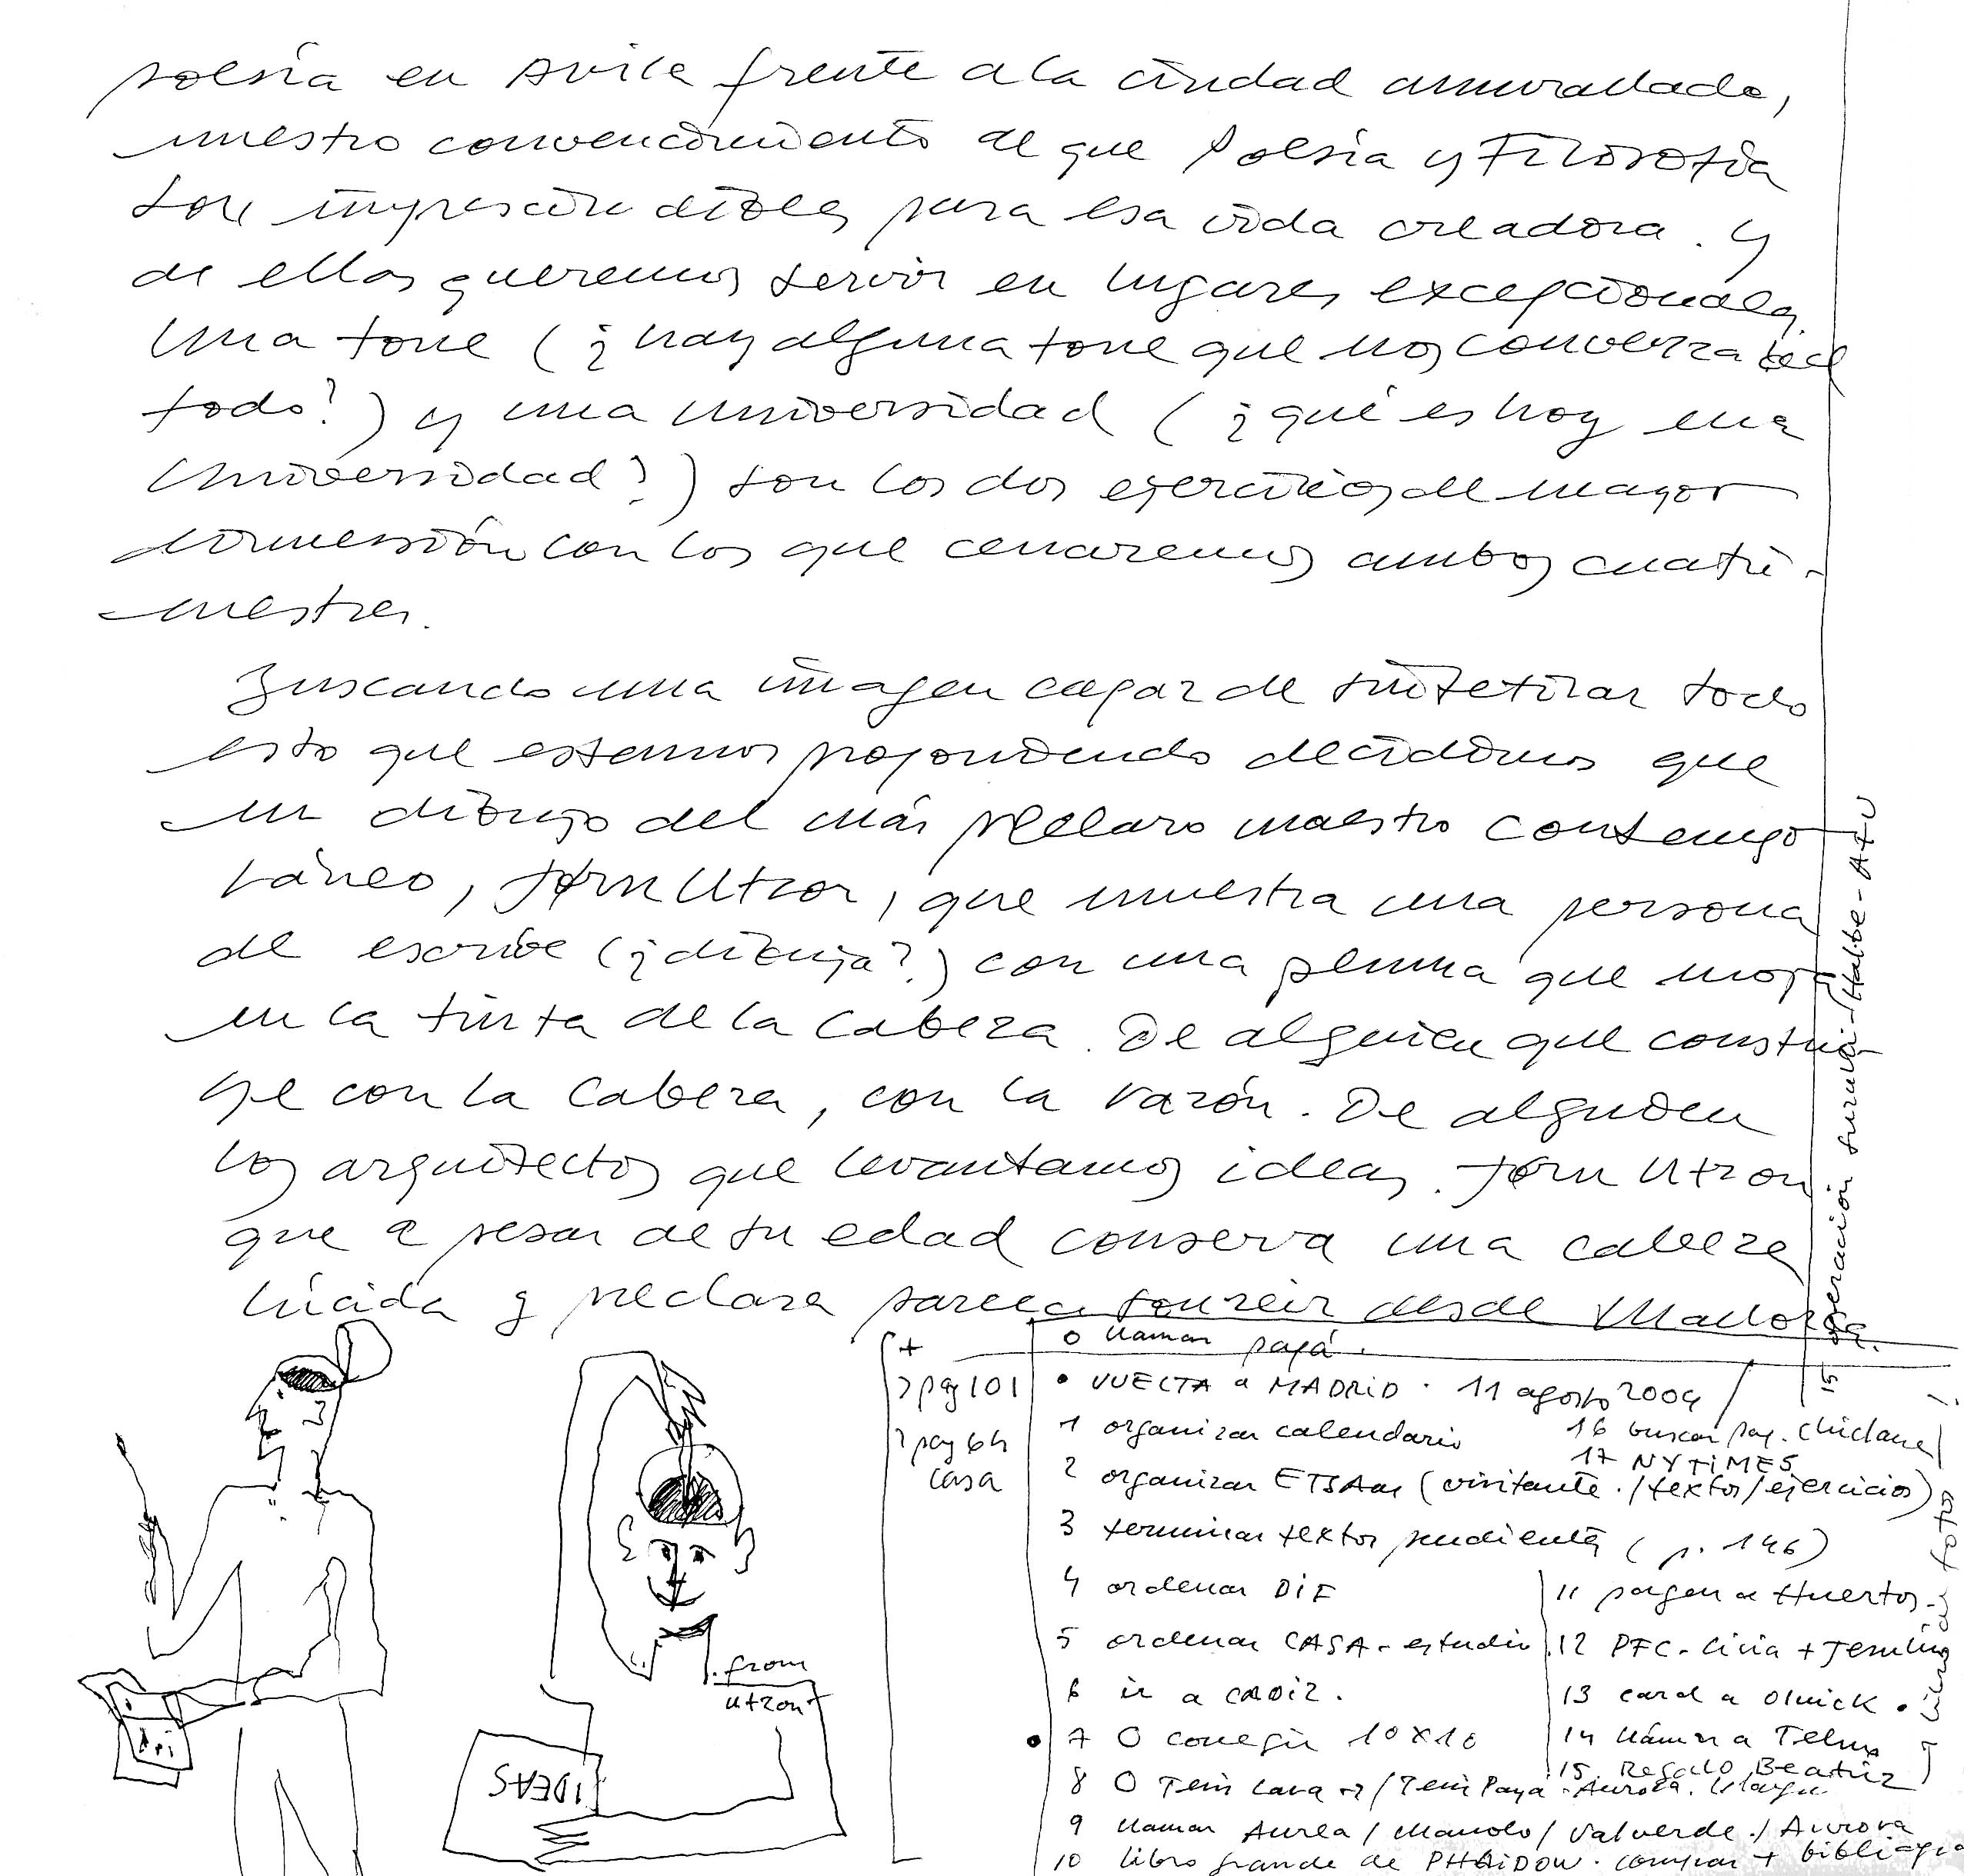 poesía en Avila frente a la ciudad amurallada,
nuestro convencimiento de que Poesía y Filosofía
son imprescindibles para esa vida creadora. Y
de ellas queremos servir en lugares excepcionales.
Una torre (¿hay alguna torre que nos convenza del
todo?) y una universidad (¿qué es hoy una
Universidad?) son los dos ejercicios de mayor
dimensión con los que cerraremos ambos cuatri-
mestres.
Buscando una imagen capaz de sintetizar todo
esto que estamos proponiendo decidimos que
un dibujo del más preclaro maestro contempo
ráneo, Jørn Utzon, que muestra una persona
de escribe (¿dibuja?) con una pluma que moja
en la tinta de la cabeza. De alguien que constru-
ye con la cabeza, con la razón. De alguien
los arquitectos que levantamos ideas. Jørn Utzon
que a pesar de su edad conserva una cabeza
lúcida y preclara parece sonreir desde Mallorca.
from
utzon
IDEAS
+
? pag 101
? pag 64
casa
0 llamar papá.
• VUELTA a MADRID · 11 agosto 2004
1 organizar calendario
2 organizar ETSAM (visitante./textos/ejercicios)
3 terminar textos pendientes (p. 146)
4 ordenar DIE
5 ordenar CASA - estudio
6 ir a CADIZ.
• 7 O corregir 10x10
8 O / Aurora.
9 llamar Aurea / Manolo / Valverde / Aurora
10 libro grande de PHAIDON · comprar + bibliogra
11 pagar a Huertos
12 PFC -
13 card a
14 llamar a Telm
15 Regalo Beatriz
16 buscar pag. Chiclana
17 NYTIMES
15 generación
fotos